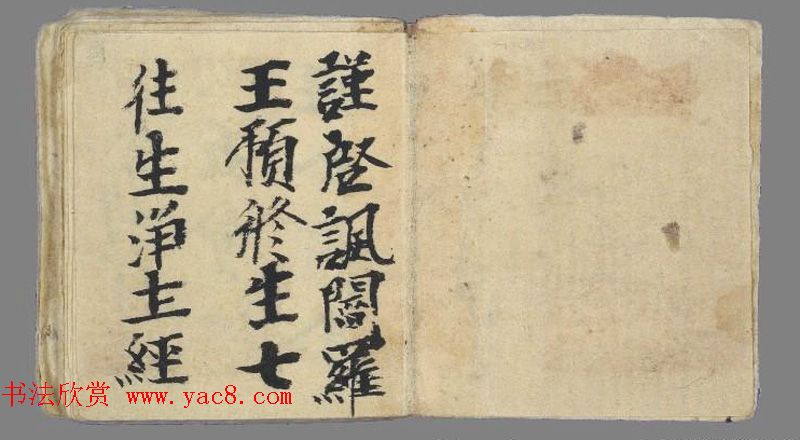 謹啓諷閻羅
王預修生七
往生淨土經
书法欣赏 www.yac8.com